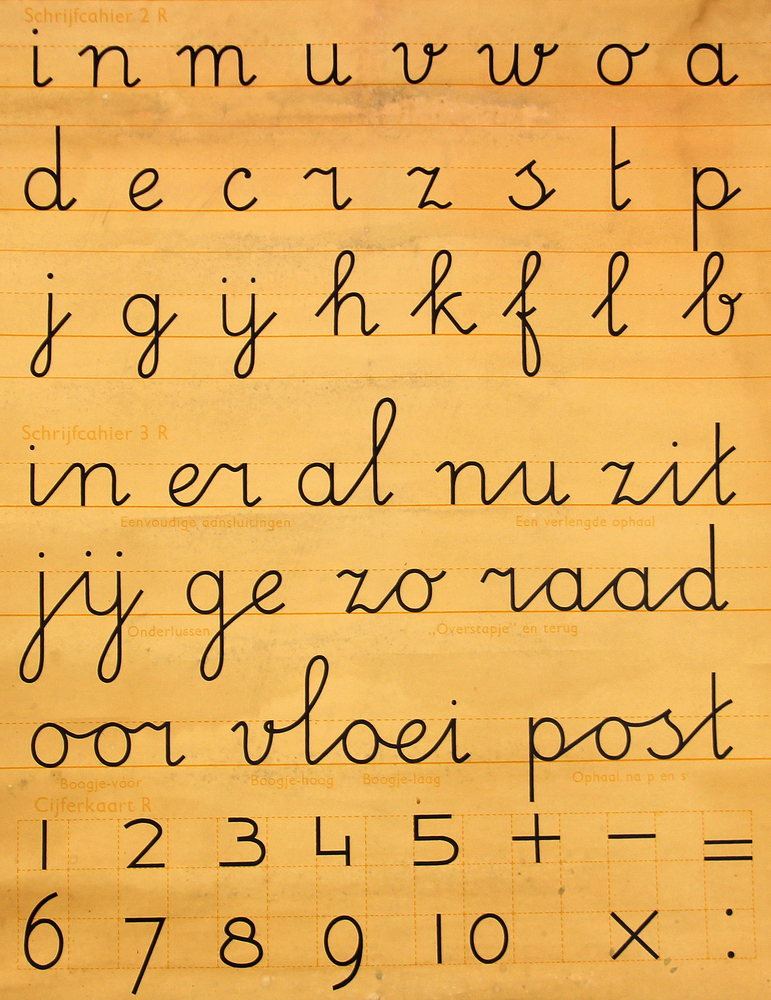 Schrijfcahier 2 R
i n m u v w o a
d e c r z s t p
j g ij h k f l b
Schrijfcahier 3 R
in er al nu zit
Eenvoudige aansluitingen Een verlengde ophaal
jij ge zo raad
Onderlussen „Overstapje” en terug
oor vloei post
Boogje-voor Boogje-hoog Boogje-laag Ophaal na p en s
Cijferkaart R
1 2 3 4 5 + − =
6 7 8 9 10 × :